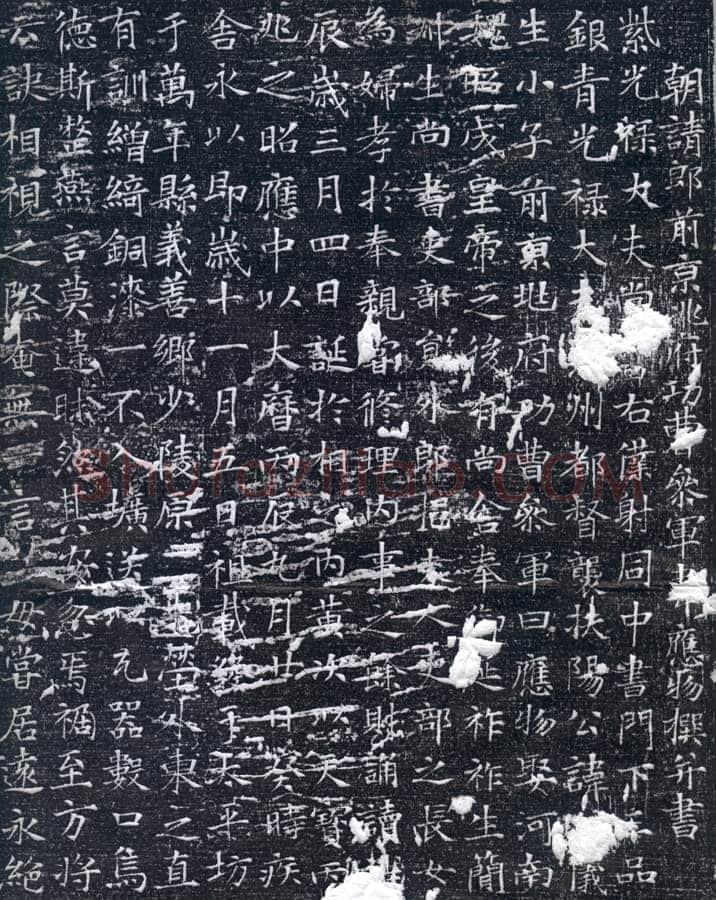 朝請郎前京兆府功曹叅軍韋應物撰并書
紫光禄大夫尚書右僕射同中書門下三品
銀青光禄大夫州都督襲扶陽公諱儀
生小子前京兆府功曹叅軍曰應物娶河南
魏昭成皇帝之後有尚舍奉御延祚祚生簡
州生尚書吏部員外郎揖夫人吏部之長女
為婦孝於奉親嘗脩理内事之餘則誦讀
辰歲三月四日誕於相之内黃次以天寶丙
兆之昭應中以大曆丙辰九月廿日癸時疾
舍永以即歲十一月五日祖載終于太平坊
于萬年縣義善鄉少陵原先塋外東之直
有訓繒綺銅漆一不入壙送以瓦器數口烏
德斯整燕言莫違昧然其安忽焉禍至方將
云訣相視之際奄無一言母嘗居遠永絶
Shufaziliao.COM